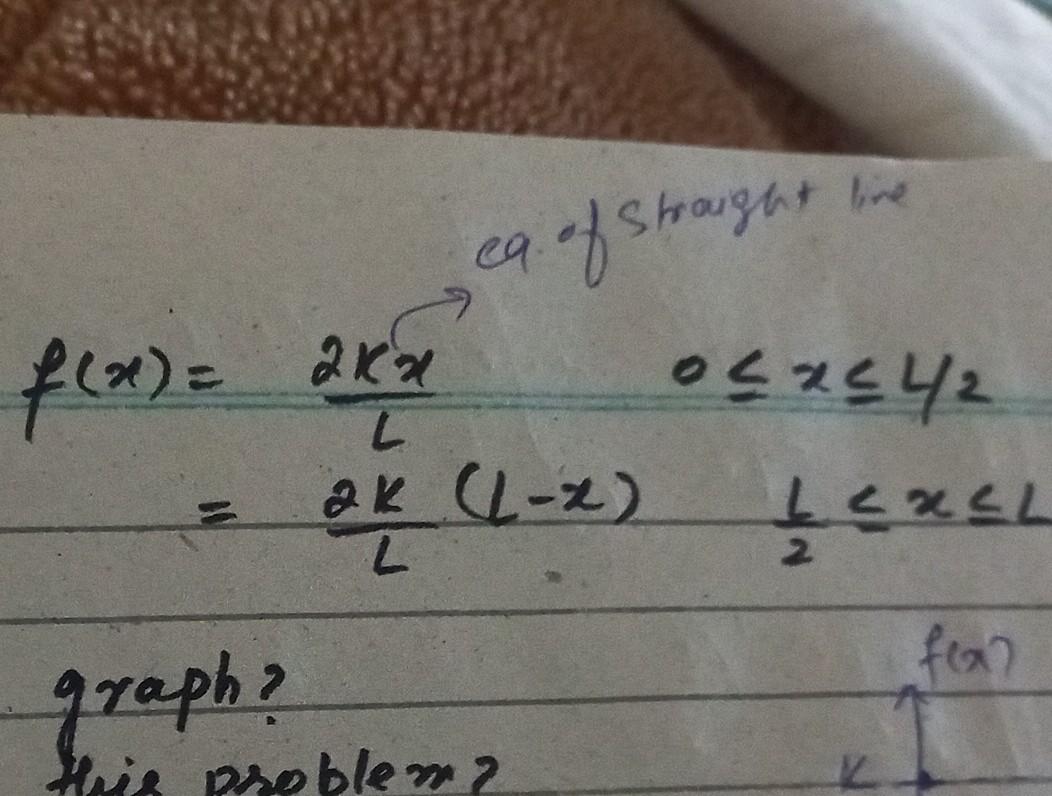 eq. of straight line
f(x) = 2Kx/L 0 ≤ x ≤ L/2
= 2K/L (L-x) L/2 ≤ x ≤ L
f(x)
graph?
this problem?
K